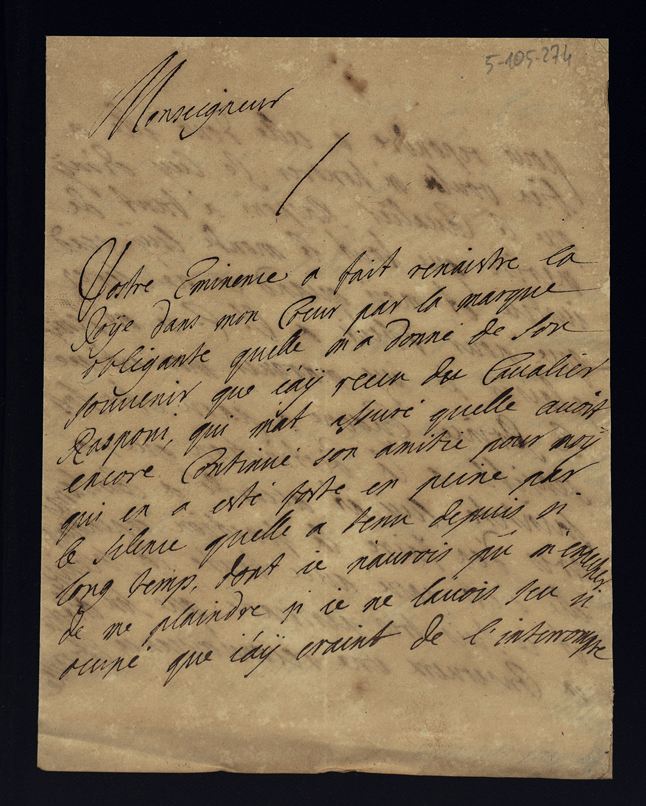 5-105-274
Monseigneur
Vostre Eminence a fait renaistre la
Joÿe dans mon Coeur par la marque
obligante quelle m'a donné de son
souvenir que i'aÿ receu du Cavalier
Rasponi, qui mat assuré quelle avoit
encore Continué son amitie pour moÿ
qui en a esté forte en peine par
le silence quelle a tenu depuis si
long temp, dont ie n'aurois pû m'empecher
de me plaindre si ie ne lavois seu si
ocupé que i'aÿ craint de l'interrompre